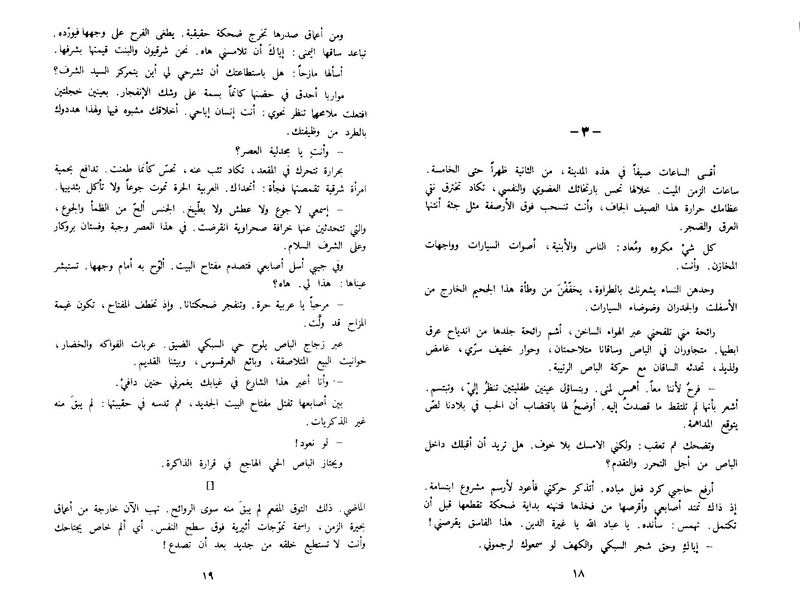 – ٣ –
أقسى الساعات صيفاً في هذه المدينة، من الثانية ظهراً حتى الخامسة.
ساعات الزمن الميت. خلالها نحس بارتخائك العضوي والنفسي، تكاد تخترق نقي
عظامك حرارة هذا الصيف الجاف، وأنت تنسحب فوق الأرصفة مثل جثة أنتنها
العرق والضجر.
كل شيْ مكروه ومُعاد: الناس والأبنية، أصوات السيارات وواجهات
المخازن. وأنت.
وحدهن النساء يشعرنك بالطراوة، يخفّفْنَ من وطأة هذا الجحيم الخارج من
الأسفلت والجدران وضوضاء السيارات.
رائحة منى تلفحني عبر الهواء الساخن، أشم رائحة جلدها من اندياح عرق
ابطيها. متجاوران في الباص وساقانا متلاحمتان، وحوار خفيف سرّي، غامض
ولذيذ، تحدثه الساقان مع حركة الباص الرتيبة.
– فرحٌ لأننا معاً. أهمس لمنى. وبتساؤل عينين طفليتين تنظرُ إليّ، وتبتسم.
أشعر بأنها لم تلتقط ما قصدتُ إليه. أوضحُ لها باقتضاب أن الحب في بلادنا لصّ
يتوقع المداهمة.
وتضحك ثم تعقب: ولكني الامسك بلا خوف. هل تريد أن أقبلك داخل
الباص من أجل التحرر والتقدم؟
أرفع حاجبي كرد فعل مباده. أتذكر حركتي فأعود لأرسم مشروع ابتسامة.
إذ ذاك تمتد أصابعي وأقرصها من فخذها فتهنه بداية ضحكة تقطعها قبل أن
تكتمل. تهمس: سأنده. يا عباد الله يا غيرة الدين. هذا الفاسق يقرصني!
– إياكِ وحق شجر السبكي والكهف لو سمعوك لرجموني.
١٨
ومن أعماق صدرها تخرج ضحكة حقيقية. يطغى الفرح على وجهها فيورّده.
تباعد ساقها اليمنى: إياكَ أن تلامسني هاه. نحن شرقيون والبنت قيمتها بشرفها.
أسألها مازحاً: هل باستطاعتك أن تشرحي لي أين يتمركز السيد الشرف؟
مواربا أحدق في حضنها كاتماً بسمة على وشك الإنفجار. بعينين خجلتين
افتعلت ملامحها تنظر نحوي: أنت إنسان إباحي. أخلاقك مشبوه فيها ولهذا هددوك
بالطرد من وظيفتك.
– وأنتِ يا مجدلية العصر؟
بحرارة تتحرك في المقعد، تكاد تثب عنه، تحسّ كأنما طعنت. تدافع بحمية
امرأة شرقية تقمصتها فجأة: أتحداك. العربية الحرة تموت جوعاً ولا تأكل بثدييها.
– إسمعي لا جوع ولا عطش ولا بطّيخ. الجنس ألحّ من الظمأ والجوع،
والتي تتحدثين عنها خرافة صحراوية انقرضت. في هذا العصر وجبة وفستان بروكار
وعلى الشرف السلام.
وفي جيبي أسل أصابعي فتصدم مفتاح البيت. ألوّح به أمام وجهها. تستبشر
عيناها: هذا لي. هاه؟
– مرحباً يا عربية حرة. وتنفجر ضحكتانا. وإذ تخطف المفتاح، تكون غيمة
المزاح قد ولّت.
عبر زجاج الباص يلوح حي السبكي الضيق. عربات الفواكه والخضار،
حوانيت البيع المتلاصقة، وبائع العرقسوس، وبيتنا القديم.
– وأنا أعبر هذا الشارع في غيابك يغمرني حنين دافيْ.
بين أصابعها تفتل مفتاح البيت الجديد، ثم تدسه في حقيبتها: لم يبقَ منه
غير الذكريات.
– لو نعود!
ويجتاز الباص الحي الهاجع في قرارة الذاكرة.
[]
الماضي. ذلك التوق المفعم لم يبقَ منه سوى الروائح. تهب الآن خارجة من أعماق
بحيرة الزمن، راسمة تموّجات أثيرية فوق سطح النفس. أي ألم خاص يجتاحك
وأنت لا تستطيع خلقه من جديد بعد أن تصدع!
١٩